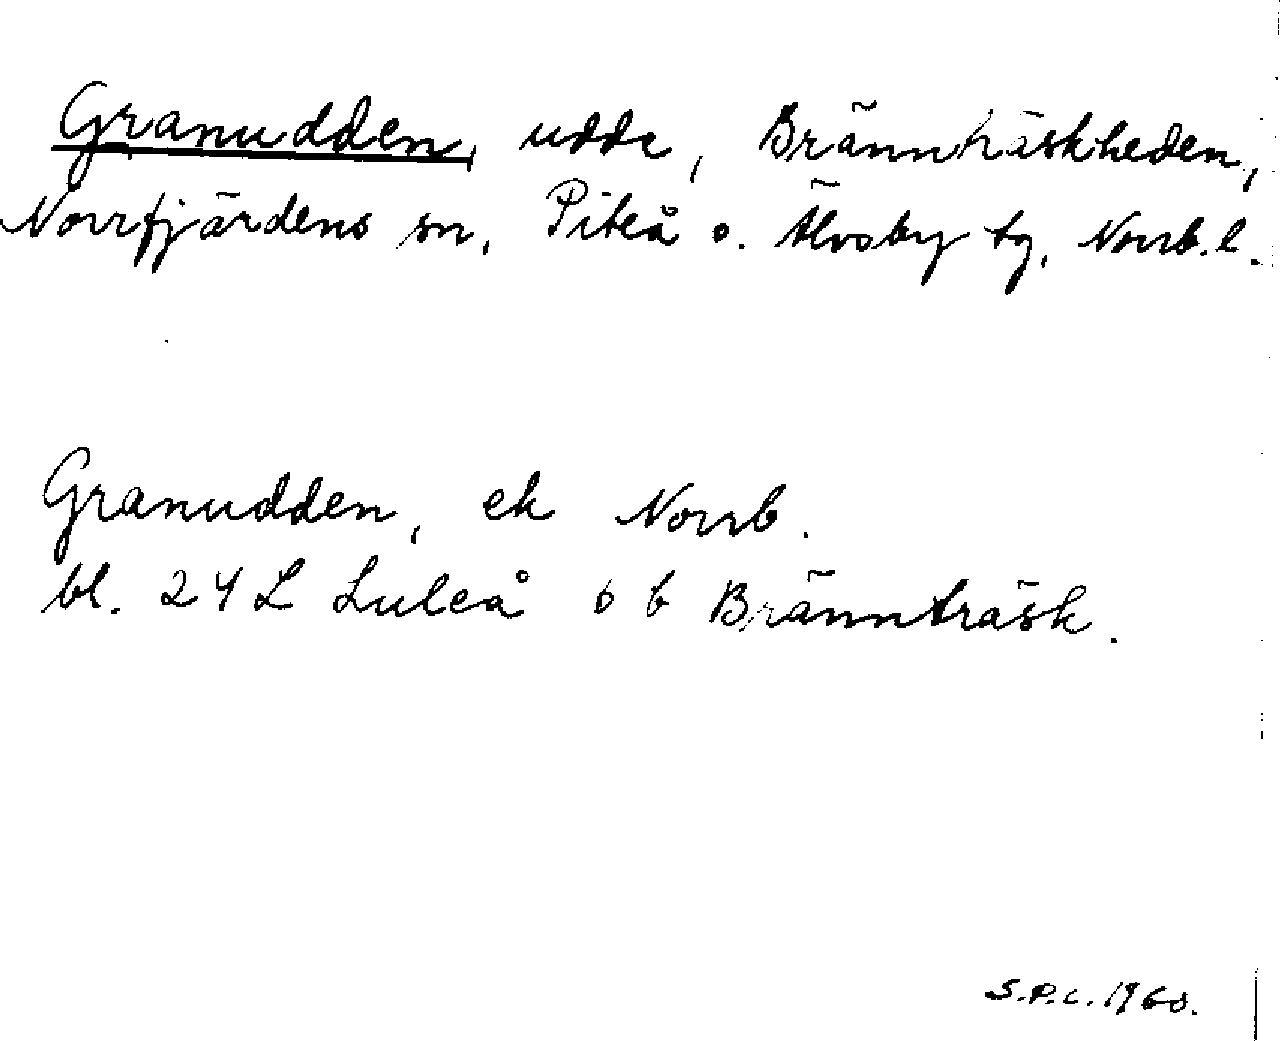 Granudden, udde, Brännträskheden,
Norrfjärdens sn, Piteå o. Älvsby tg, Norrb. l.
Granudden, ek Norrb.
bl. 24 L Luleå 6 b Brännträsk.
S.P.C. 1960.